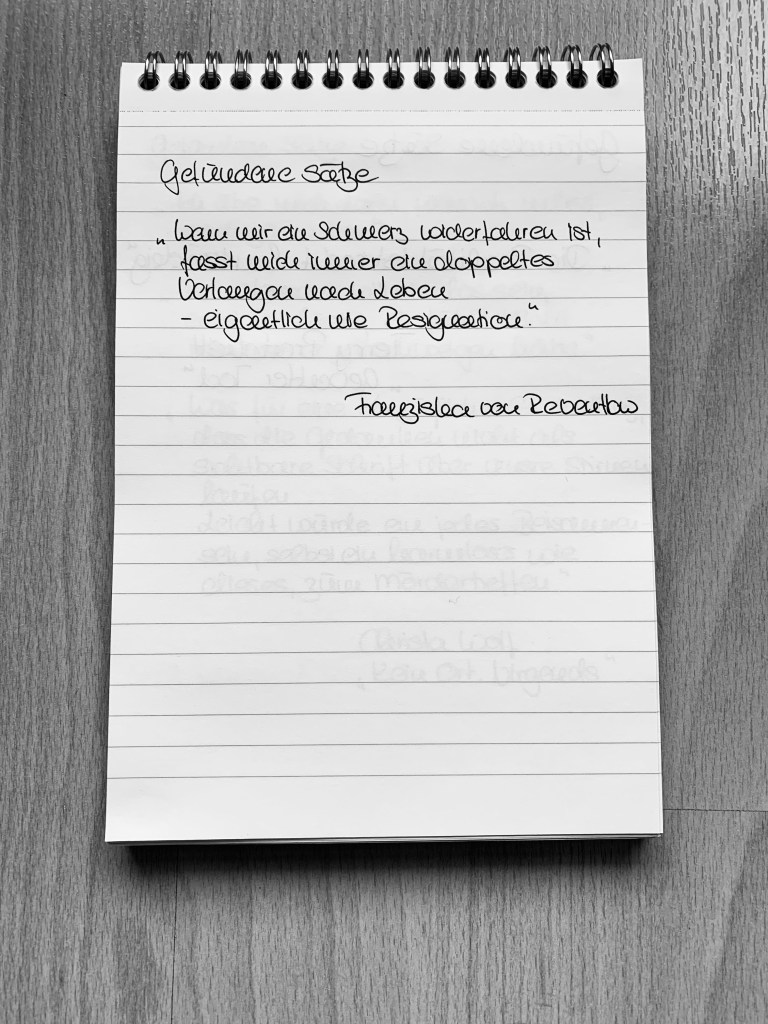 Gefundene Sätze
„Wenn mir ein Schmerz widerfahren ist,
fasst mich immer ein doppeltes
Verlangen nach Leben
- eigentlich nie Resignation."
Franziska von Reventlow